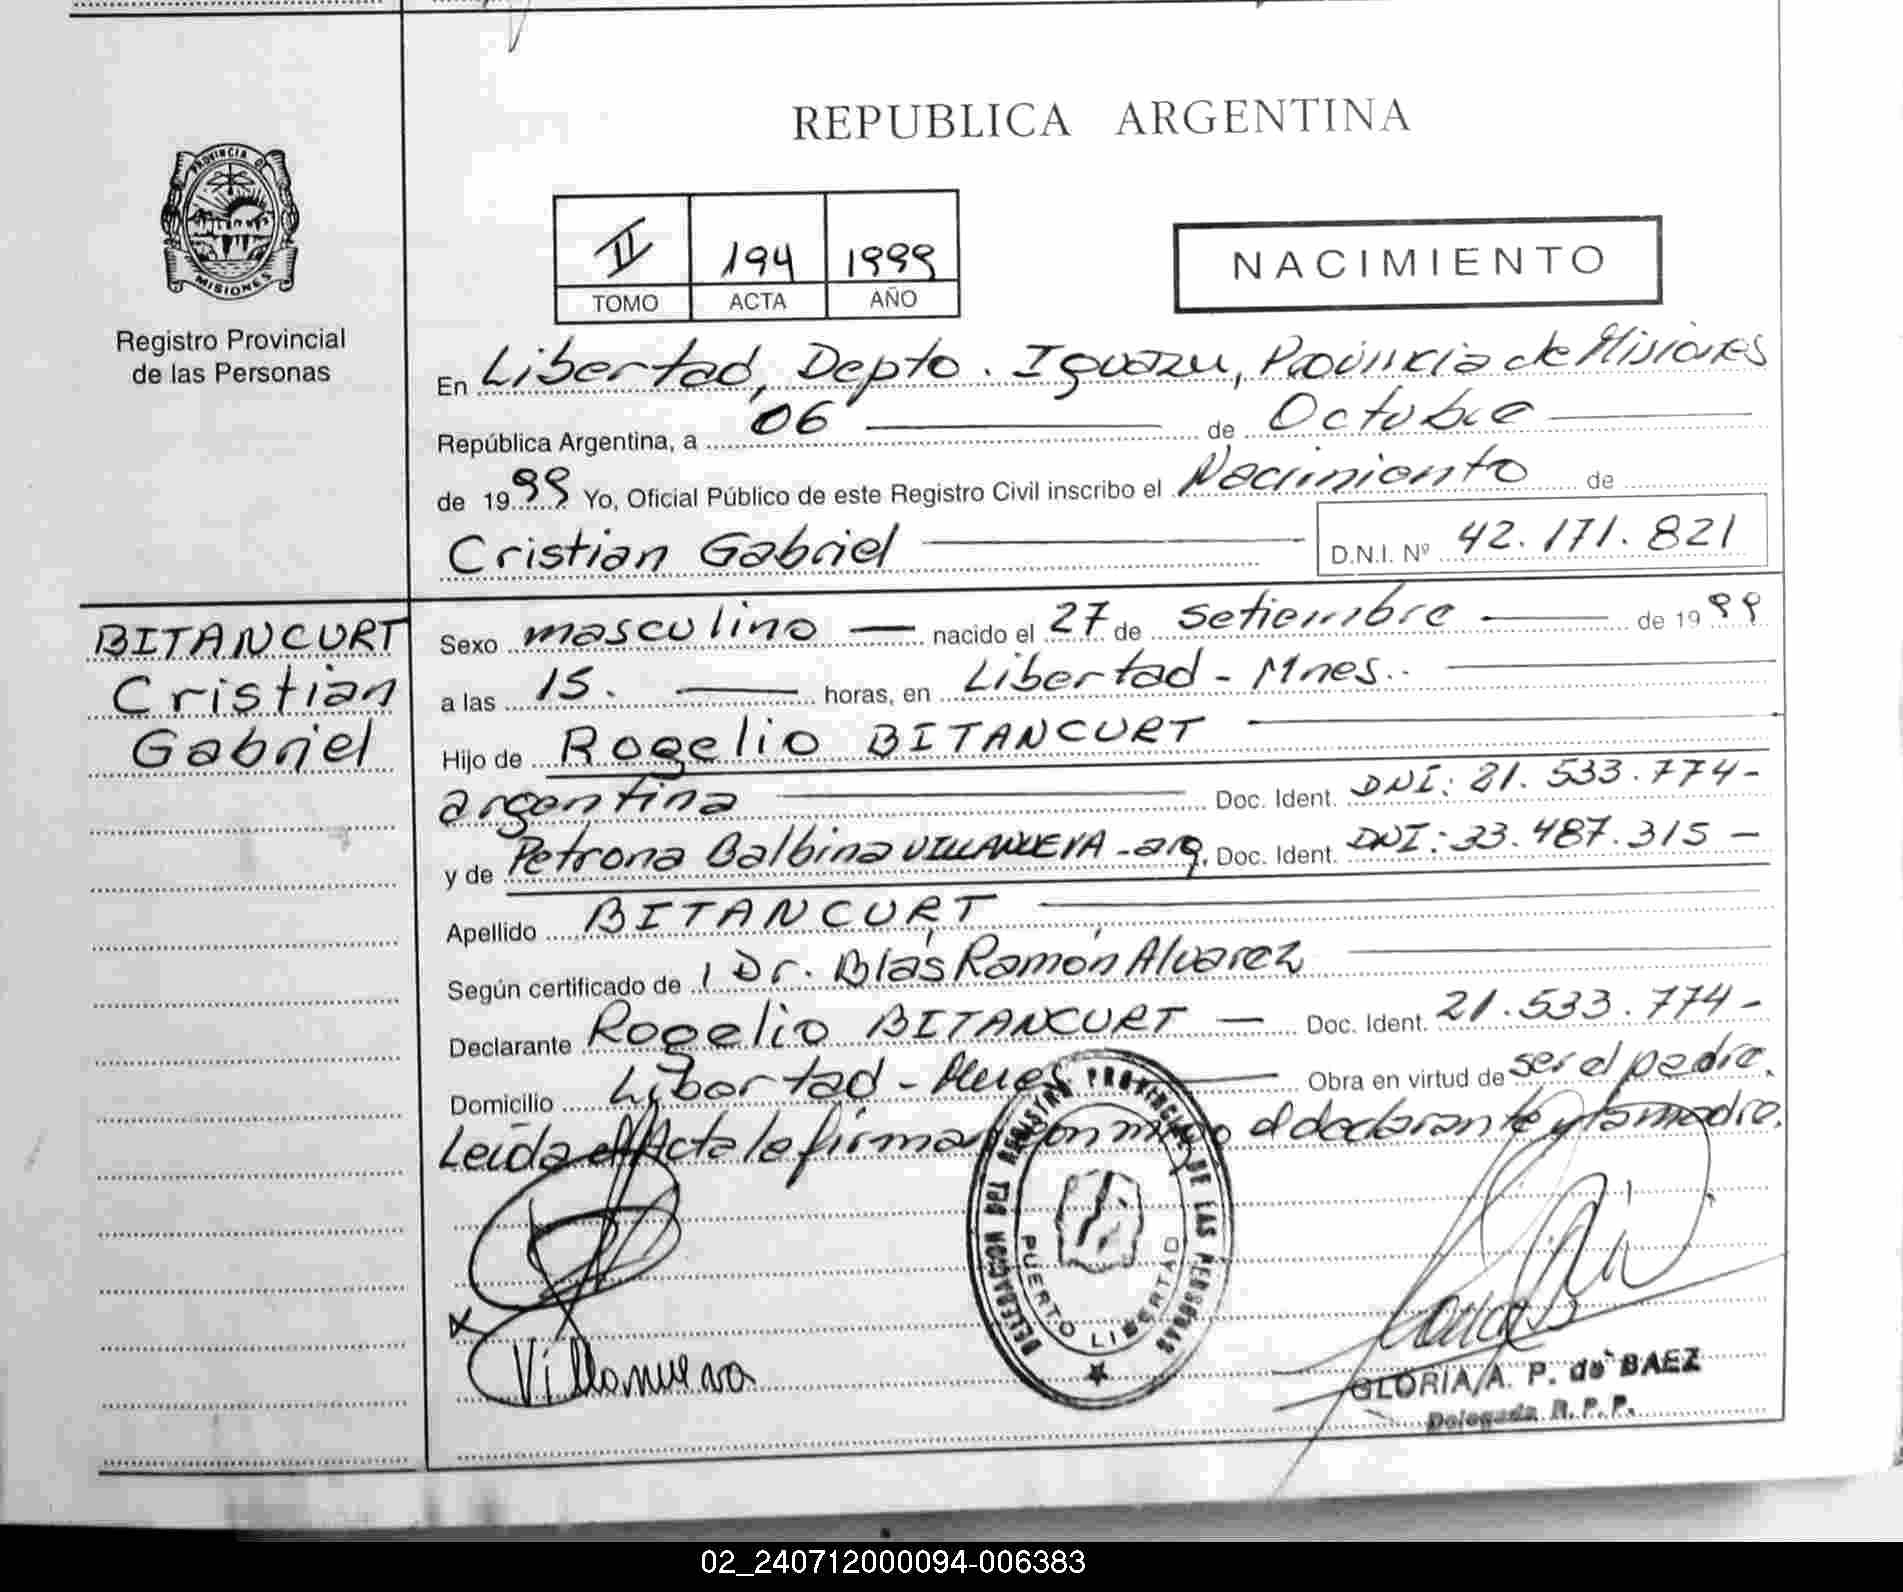 REPUBLICA ARGENTINA
PROVINCIA DE
MISIONES
Registro Provincial
de las Personas
II 194 1999
TOMO ACTA AÑO
NACIMIENTO
En Libertad, Depto. Iguazu, Provincia de Misiones
República Argentina, a 06 de Octubre
de 1999 Yo, Oficial Público de este Registro Civil inscribo el Nacimiento de
Cristian Gabriel D.N.I. Nº 42.171.821
BITANCURT
Cristian
Gabriel
Sexo masculino — nacido el 27 de Setiembre de 1999
a las 15. horas, en Libertad - Mnes.
Hijo de Rogelio BITANCURT
argentina Doc. Ident. DNI: 21.533.774-
y de Petrona Balbina VILLANUEVA - arg. Doc. Ident. DNI: 33.487.315 -
Apellido BITANCURT
Según certificado de Dr. Blás Ramón Alvarez
Declarante Rogelio BITANCURT — Doc. Ident. 21.533.774-
Domicilio Libertad - Mnes Obra en virtud de ser el padre.
Leída el Acta la firman conmigo el declarante y la madre.
DELEGACION DEL REGISTRO PROVINCIAL DE LAS PERSONAS
PUERTO LIBERTAD
x
Villanueva
GLORIA A. P. de BAEZ
Delegada R. P. P.
02_240712000094-006383